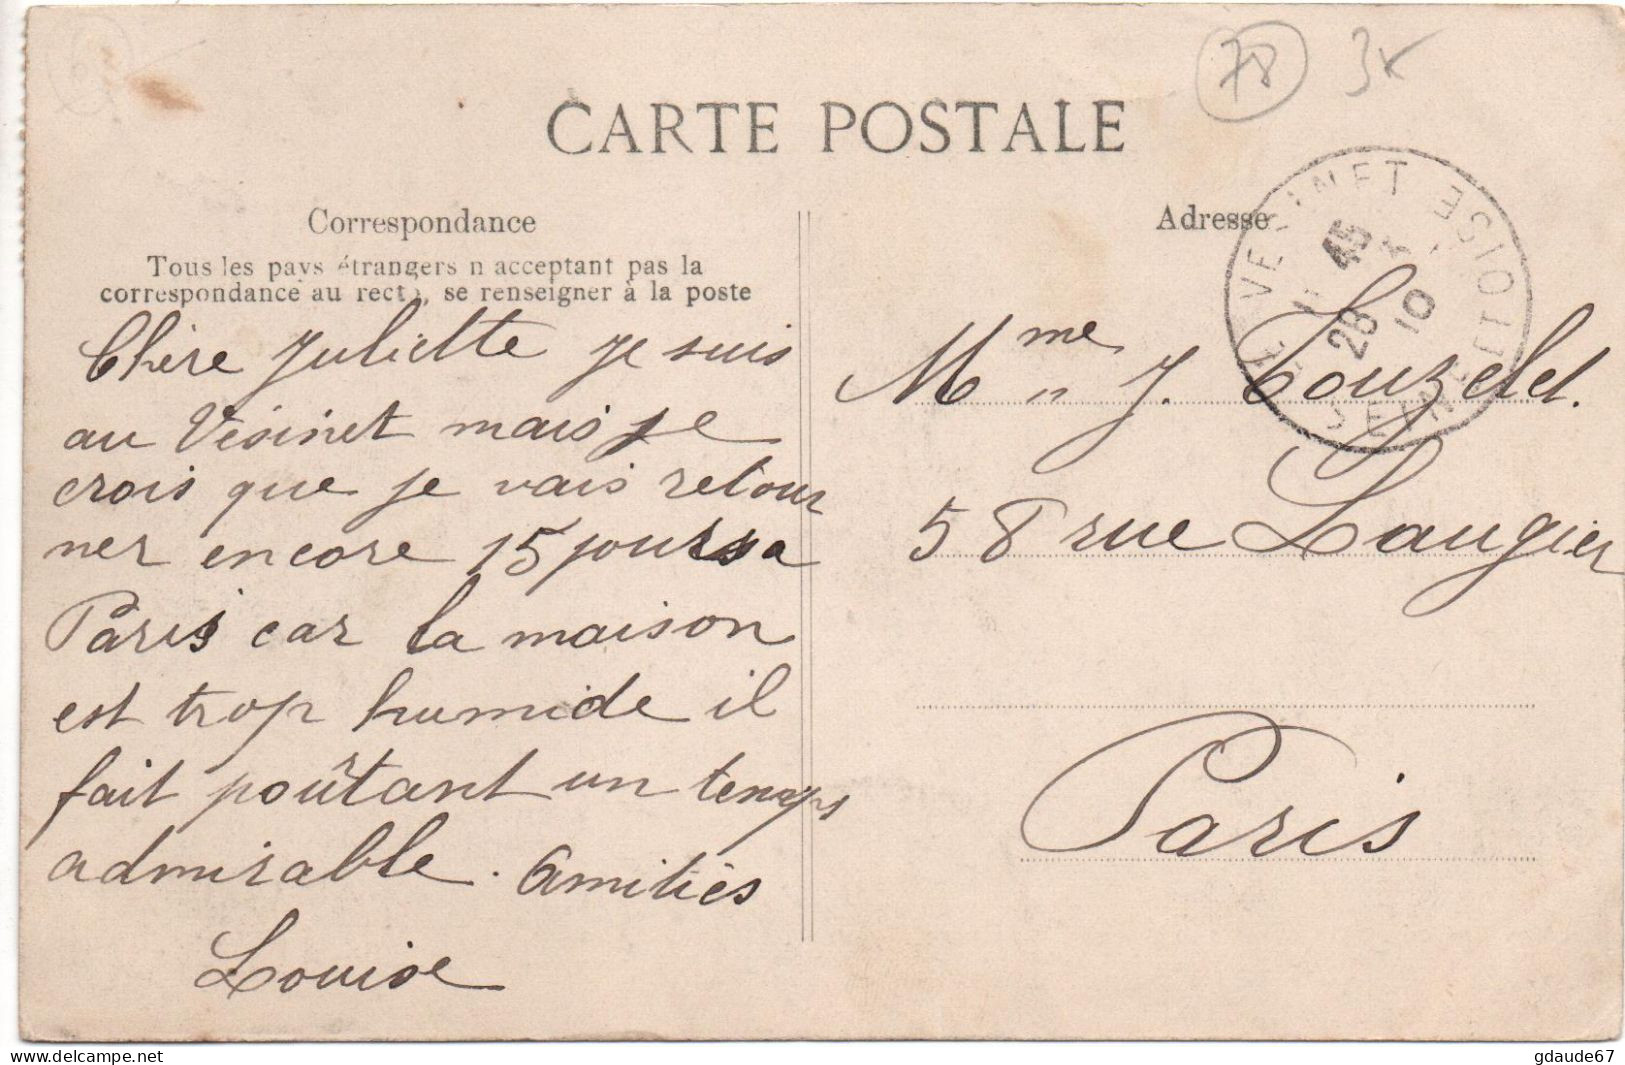 78 3x
CARTE POSTALE
Correspondance
Tous les pays étrangers n'acceptant pas la
correspondance au recto, se renseigner à la poste
Chère Juliette je suis
au Vésinet mais je
crois que je vais retour
ner encore 15 jours a
Paris car la maison
est trop humide il
fait poûtant un temps
admirable. Amitiés
Louise
Adresse
LE VESINET SEINE ET OISE
11 45
28 3
10
Mme J. Touzelet.
58 rue Laugier
Paris
https://www.delcampe.net
gdaude67